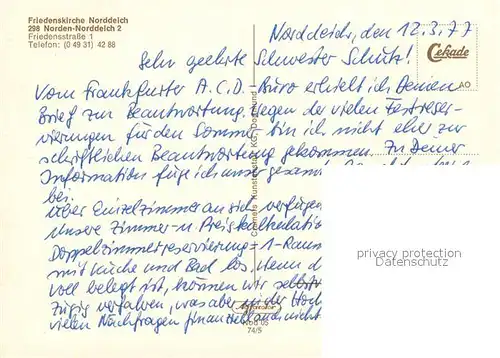 Friedenskirche Norddeich
298 Norden-Norddeich 2
Friedensstraße 1
Telefon: (0 49 31) 42 88
Norddeich, den 12.3.77
Cekade
AO
Sehr geehrte Schwester Schütz!
Vom Frankfurter A.C.D.-Büro erhielt ich Deinen
Brief zur Beantwortung. Wegen der vielen Festreser-
vierungen für den Sommer bin ich nicht eher zur
schriftlichen Beantwortung gekommen. Zu Deiner
Information füge ich unser gesam
bei.
Über Einzelzimmer an sich verfügen
Unsere Zimmer- u. Preiskalkulation
Doppelzimmerreservierung = 1-Raum
mit Küche und Bad los. Wenn d
voll belegt ist, können wir selbst
zügig verfahren, was aber in der Hoch
vielen Nachfragen finanziell und nicht
Cramers Kunstanstalt KG, Dortmund
74/5
privacy protection
www.ansichtskarten-center.de